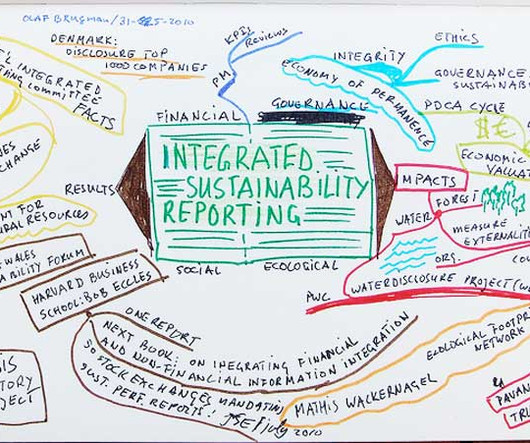 OLAF BRUGMAN/31-5-2010
DENMARK:
DISCLOSURE TOP
1000 COMPANIES
KPIs
REVIEWS
PM
INTEGRITY
ETHICS
GOVERNANCE
SUSTAINAB
ECONOMY OF PERMANENCE
PDCA CYCLE
INTEGRATED
COMMITTEE
FACTS
FINANCIAL
GOVERNANCE
$ €
ECONOMIC
VALUAT
CHANGE
INTEGRATED
SUSTAINABILITY
REPORTING
IMPACTS
RESULTS
FOREST
WATER
MEASURE
EXTERNALITI
NT FOR
URAL RESOURCES
WALES
ABILITY FORUM
SOCIAL
ECOLOGICAL
ORG.
PWC
WATERDISCLOSURE PROJECT (W
HARVARD BUSINESS
SCHOOL: BOB ECCLES
ONE REPORT
NEXT BOOK: ON INEGRATING FINANCIAL
AND NON-FINANCIAL INFORMATION INTEGRATION
STOCK EXCHANGES MANDATING
SUST. PERF. REPORTS!
JSE/July
2010
ECOLOGICAL FOOTPR
NETWORK
MATHIS WACKERNAGEL
SIS
TORY
JECT
PAVAN
TRU